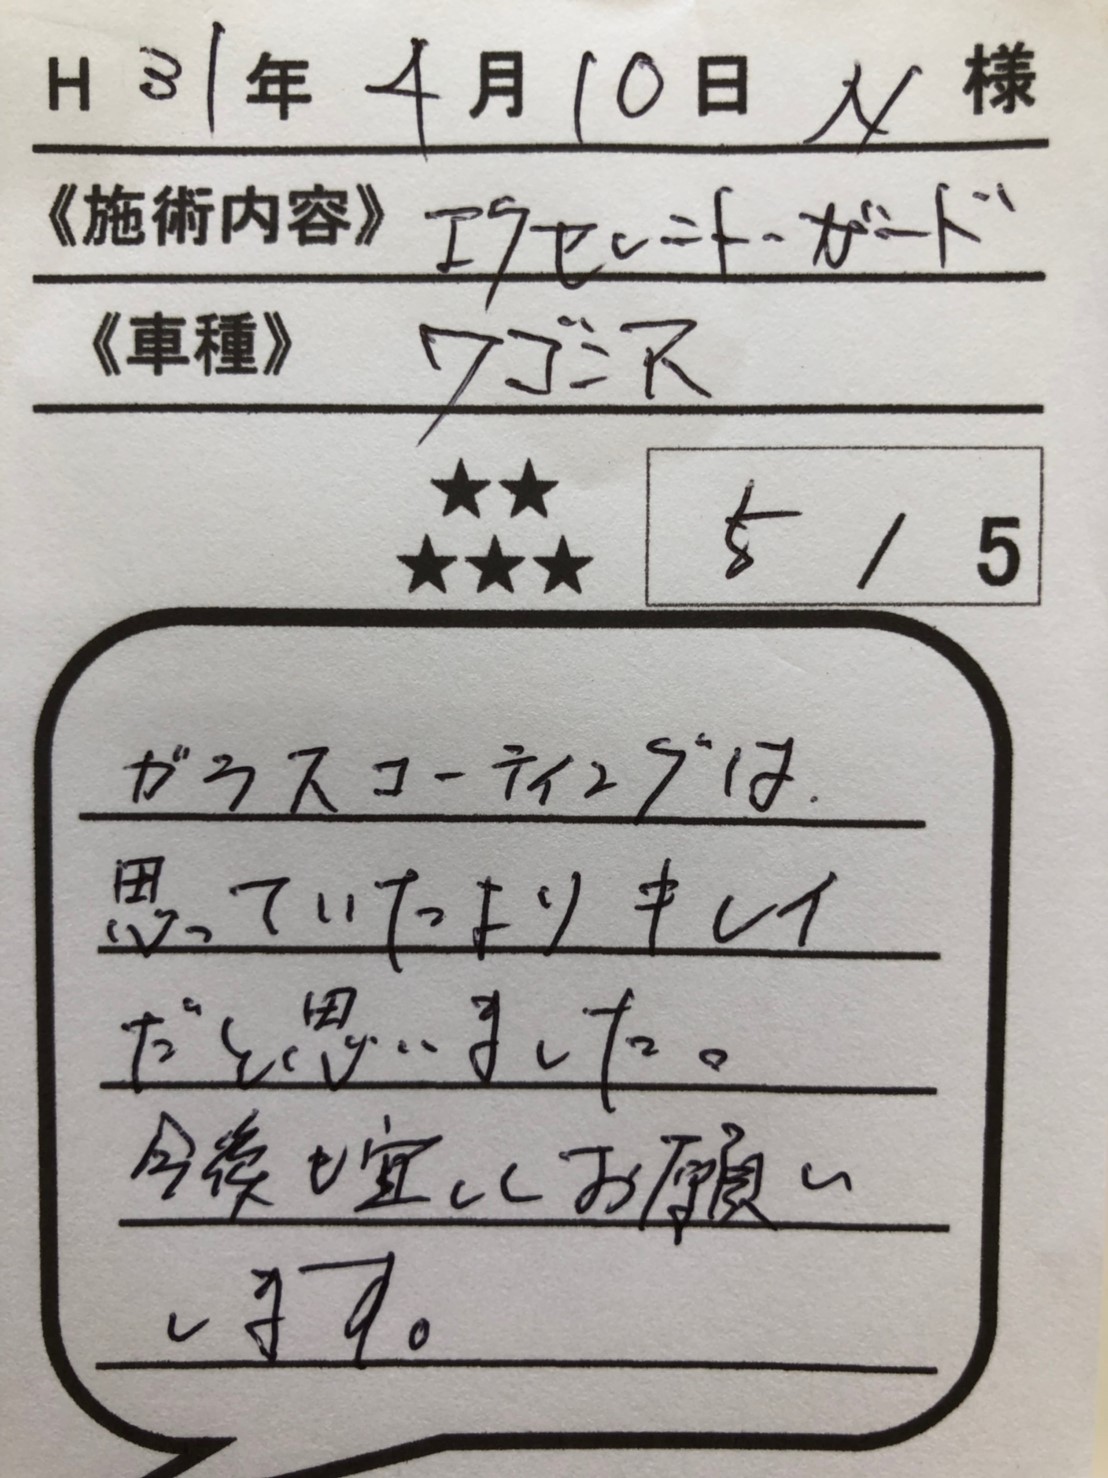 H 31年 4月 10日 N 様
《施術内容》 エクセレント・ガード
《車種》 ワゴンR
★★
★★★ 5 / 5
ガラスコーティングは、
思っていたよりキレイ
だと思いました。
今後も宜しくお願い
します。